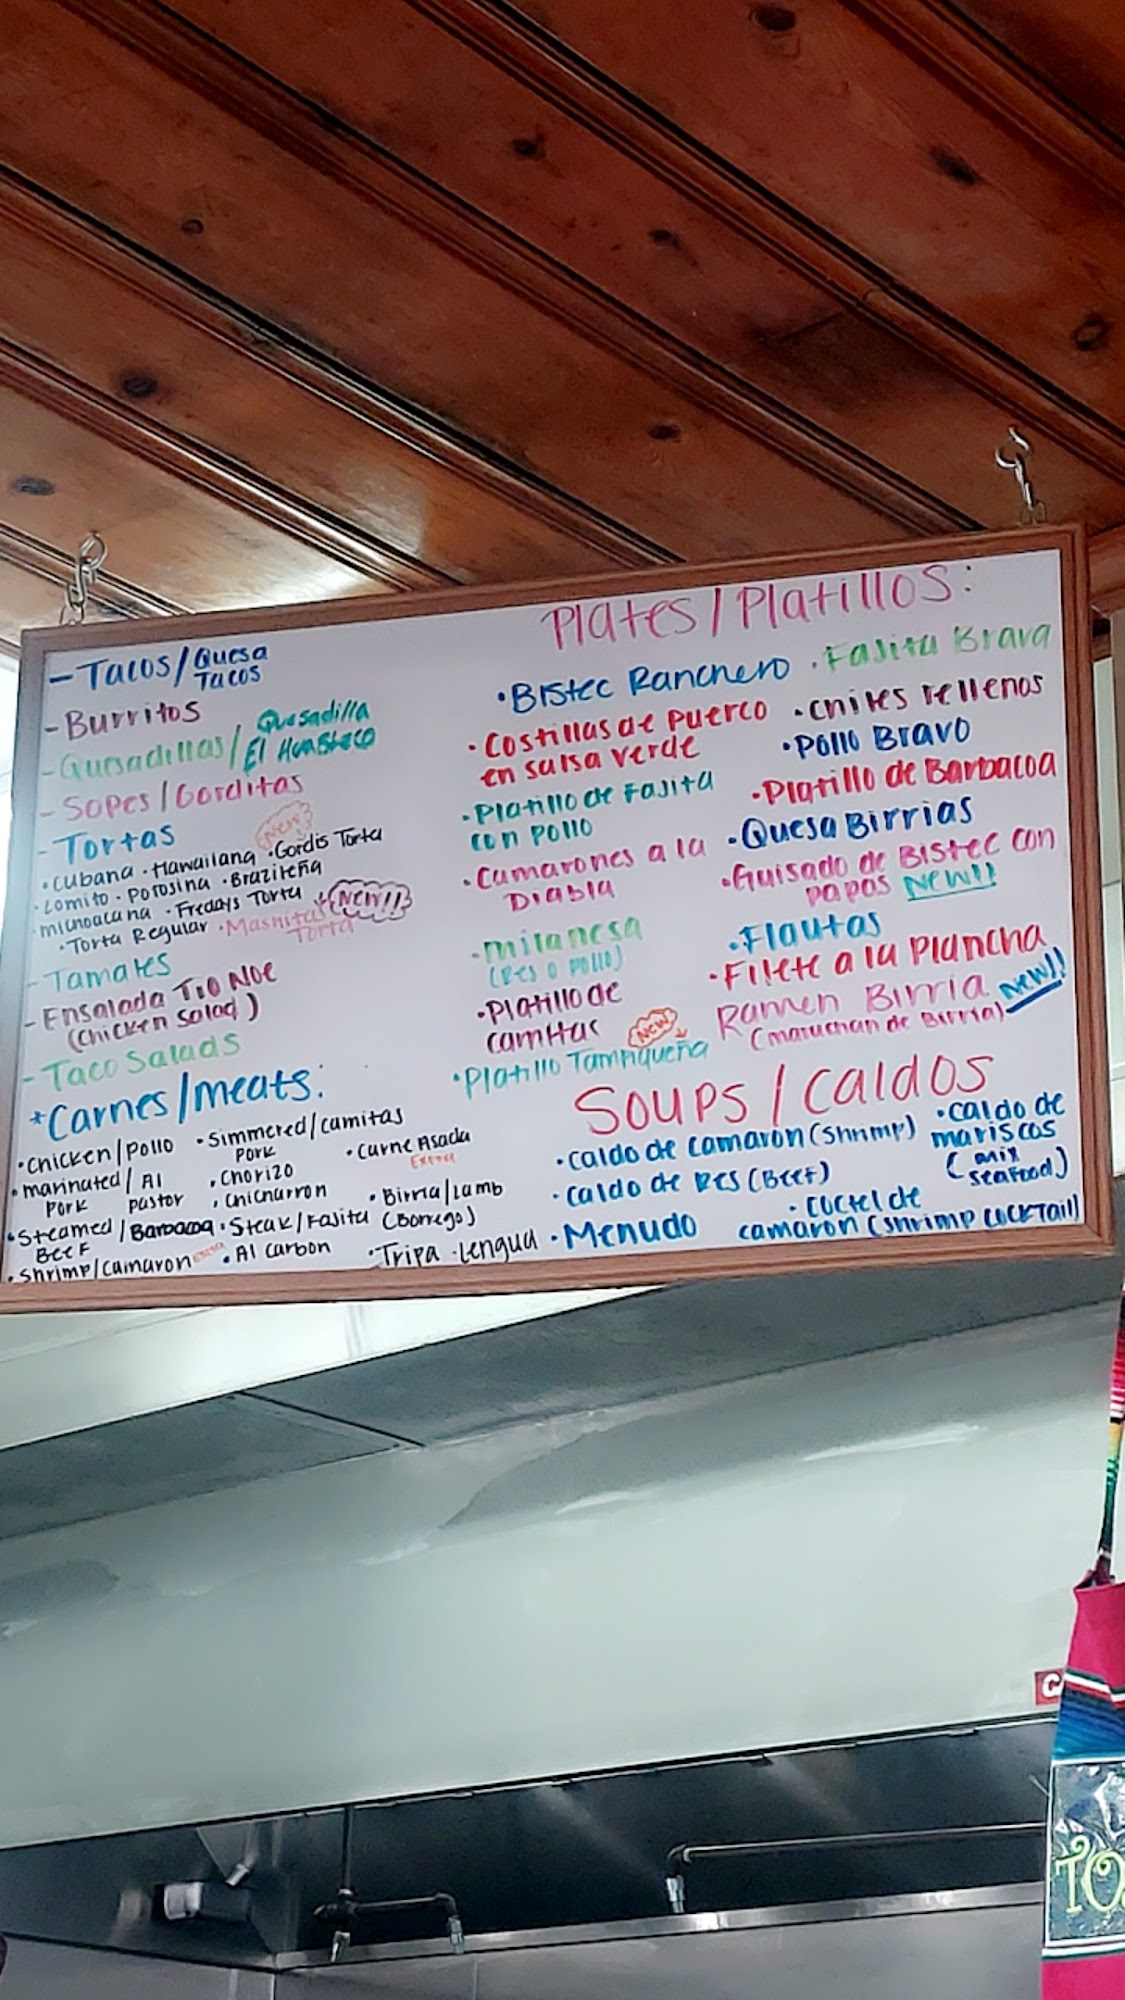 - Tacos / Quesa
Tacos
- Burritos
- Quesadillas / Quesadilla
El Huasteco
- Sopes / Gorditas
- Tortas
New
• Cubana • Hawaiiana • Gordis Torta
• Lomito • Potosina • Brazileña
michoacana • Fredays Torta
NEW!!
• Torta Regular • Mashitas
Torta
- Tamales
- Ensalada Tio Noe
(Chicken Salad)
- Taco Salads
*Carnes / meats:
• Chicken / pollo
• marinated / Al
Pork pastor
• Steamed / Barbacoa
Beef
• Shrimp / camaron
• Simmered / carnitas
Pork
• Chorizo
• Chicharron
• Steak / Fajita
• Al Carbon
• Carne Asada
Extra
• Birria / Lamb
(Borrego)
• Tripa • Lengua •
Plates / Platillos:
• Bistec Ranchero
• Costillas de puerco
en salsa verde
• Platillo de Fajita
con pollo
• Camarones a la
Diabla
• milanesa
(Res o pollo)
• Platillo de
carnitas
NEW
• Platillo Tampiqueña
• Fajita Brava
• chiles rellenos
• Pollo Bravo
• Platillo de Barbacoa
• Quesa Birrias
• Guisado de Bistec con
papas NEW!!
• Flautas
• Filete a la Plancha
Ramen Birria NEW!!
(maruchan de Birria)
Soups / Caldos
• Caldo de camaron (shrimp)
• Caldo de Res (Beef)
• Menudo
• Caldo de
mariscos
(mix
seafood)
• Coctel de
camaron (shrimp cocktail)
TO